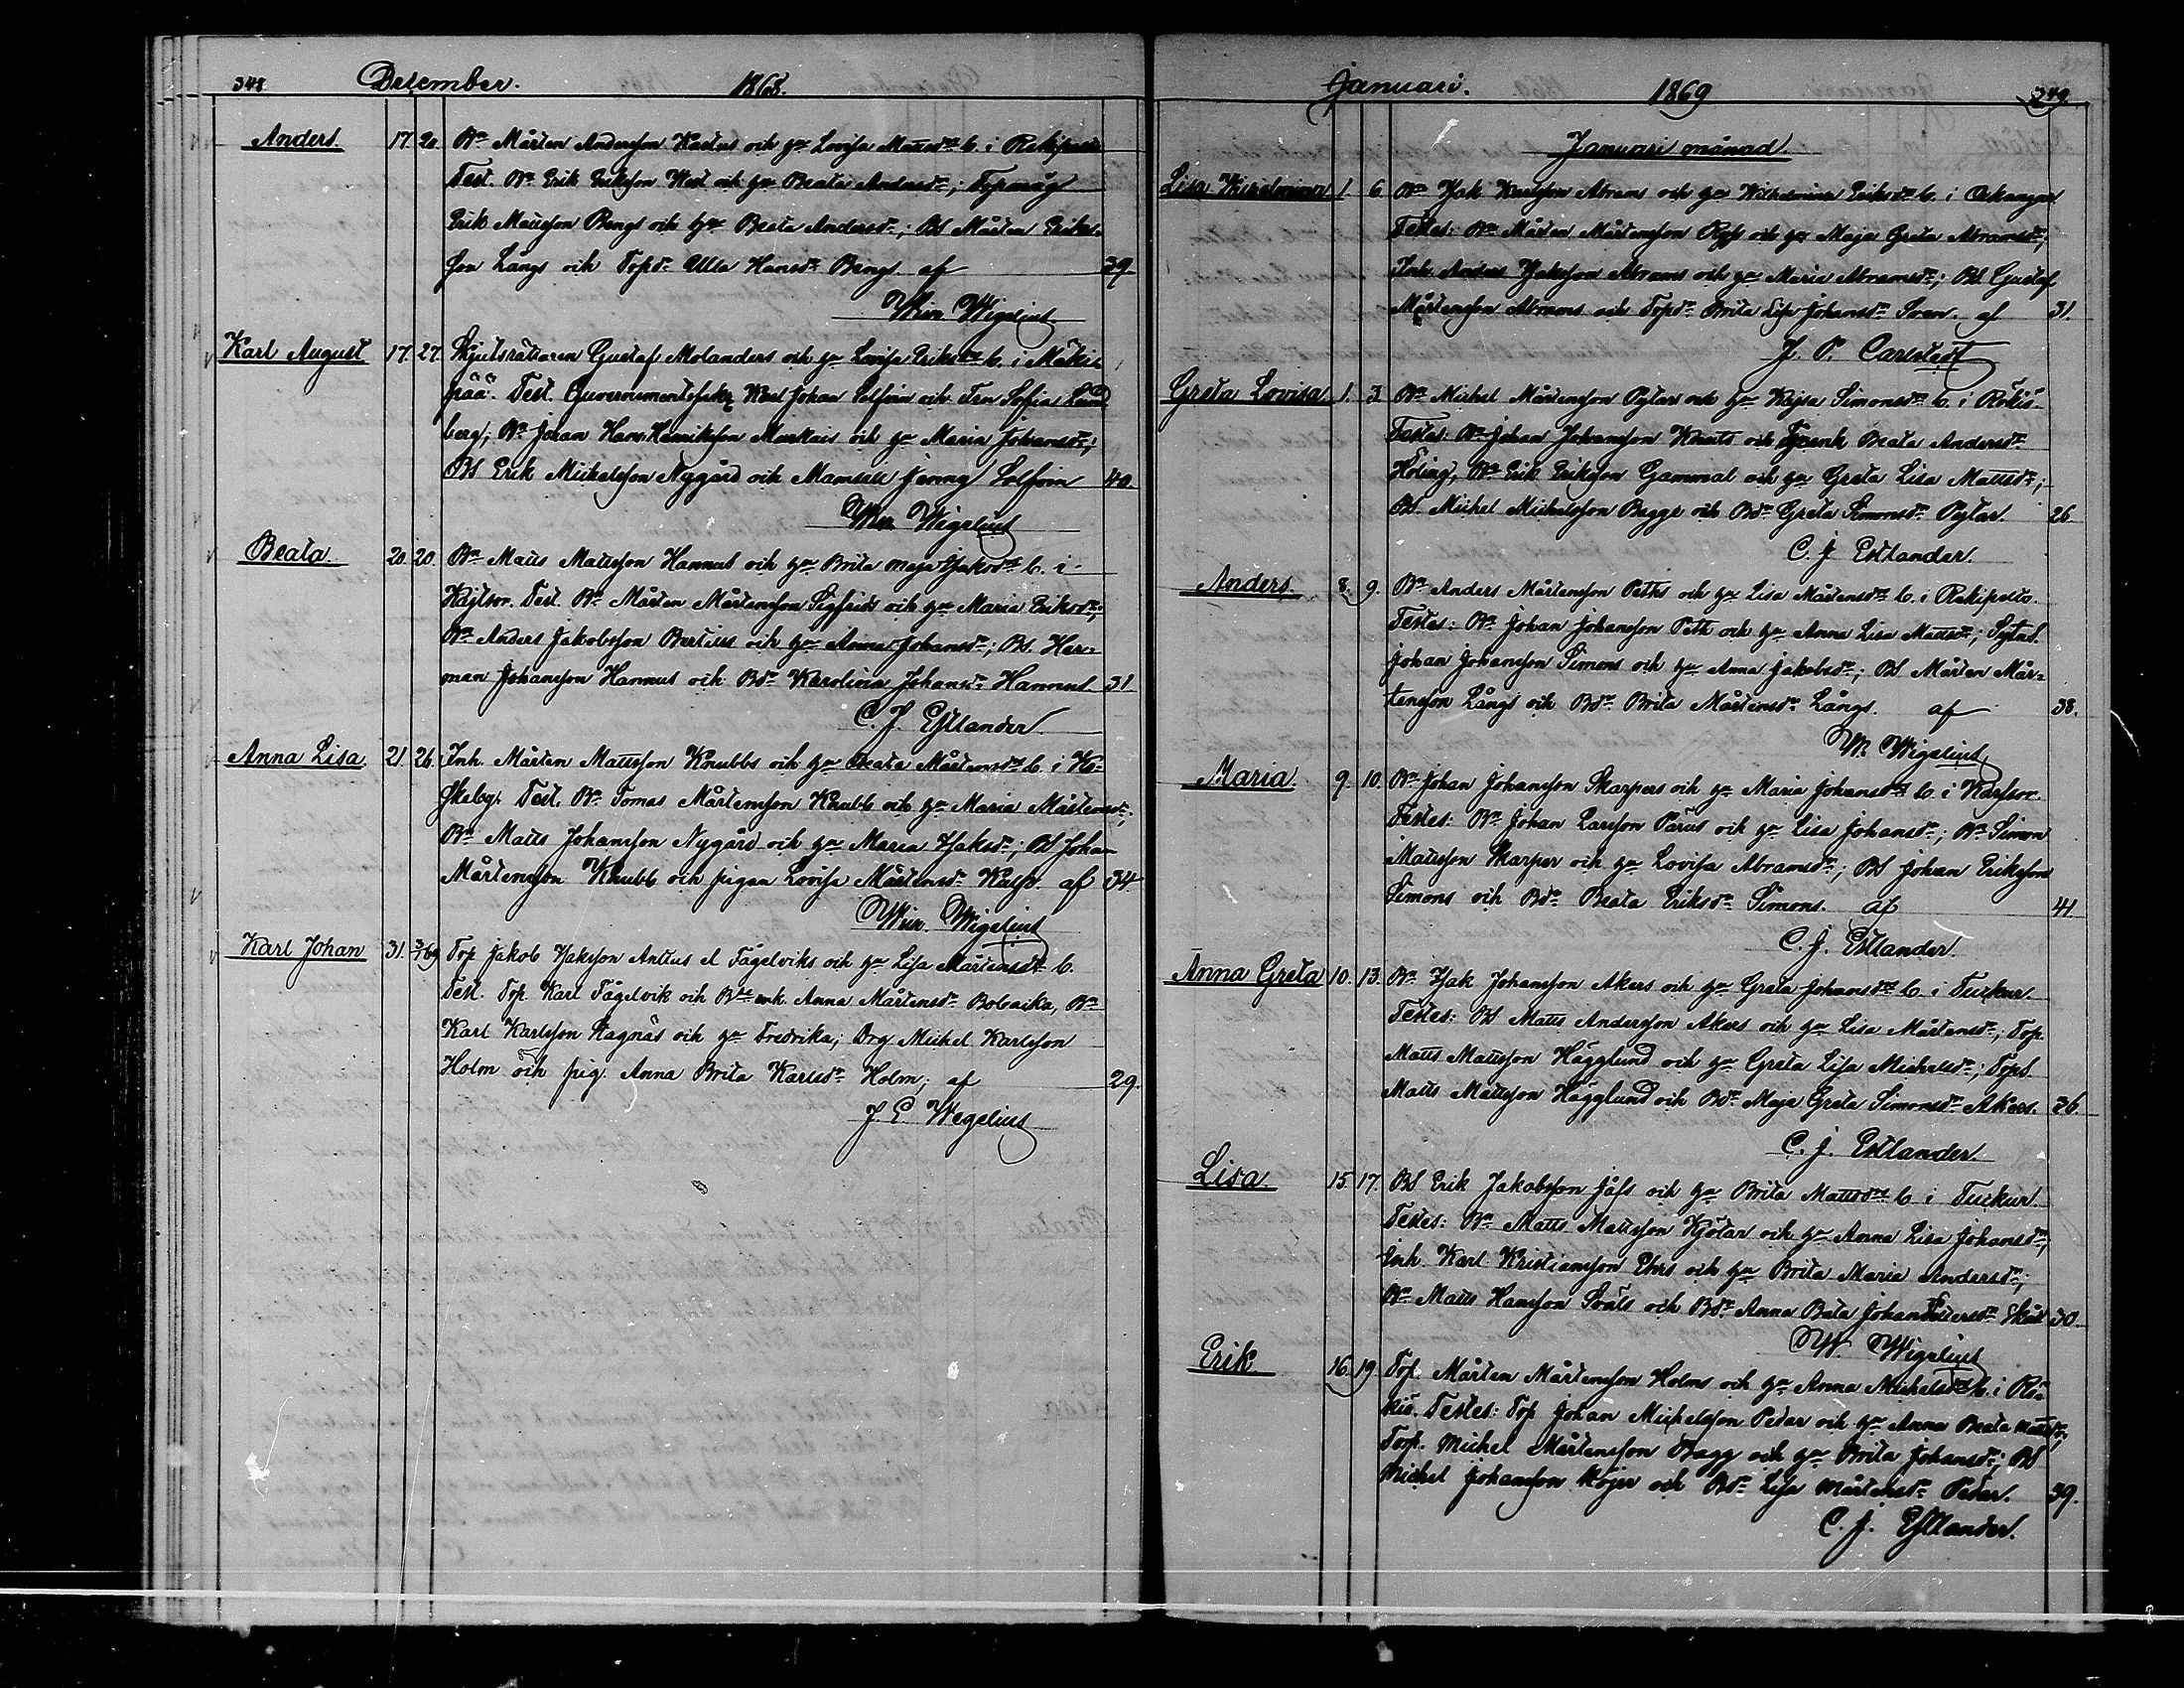 348 December. 1868.
Anders. 17. 20. Bn Mårten Andersson Kastus och hu Lovisa Mattsdr b. i Rekipelto
Test. Bn Erik Eriksson West och hu Beata Andersdr;
Erik Mattsson Bengs och hu Beata Andersdr; Bs Mårten Eriks-
son Långs och Topdr Ulla Hansdr Bengs af 39.
Wm. Wigelius
Karl August 17. 27. Skjutsrättaren Gustaf Molanders och hu Lovisa Eriksdr b. i Mäki-
pää. Test. Johan Solfvin och Fru Sofia Lund
berg; Bn Johan Hans Henriksson Markais och hu Maria Johansdr;
Bs Erik Michelsson Nygård och Mamsell Jenny Solfvin 40.
Wm. Wigelius
Beata. 20. 20. Bn Matts Mattsson Hannus och hu Brita Maja Isaksdr b. i
Kajtsor. Test. Bn Mårten Mårtensson Sigfrids och hu Maria Eriksdr;
Bn Anders Jakobsson Bertius och hu Anna Johansdr; Bs. Her-
man Johansson Hannus och Bdr Karolina Johansdr Hannus 31
C. J. Estlander.
Anna Lisa. 21. 26. Inh. Mårten Mattsson Knubbs och hu Beata Mårtensdr b. i Ko-
skeby. Test. Bn Tomas Mårtensson Knubb och hu Maria Mårtensdr;
Bn Matts Johansson Nygård och hu Maria Isaksdr; Bs Johan
Mårtensson Knubb och pigan Lovisa Mårtensdr af 34
Wm. Wigelius
Karl Johan 31. 3/1 69 Top Jakob Isaksson Anttus el Fågelviks och hu Lisa Mårtensdr b.
Test. Top. Karl Fågelvik och enk. Anna Mårtensdr Bn
Karl Karlsson Hagnäs och hu Fredrika; Drg Michel Karlsson
Holm och pig. Anna Brita Karlsdr Holm; af 29.
J. E. Wegelius
Januari. 1869 349.
Januari månad.
Lisa Wilhelmina 1. 6. Bn Isak Abrams och hu Wilhelmina Eriksdr b. i
Testes: Bn Mårten Mårtensson och hu Maja Greta Abramsdr;
Inh. Anders Isaksson Abrams och hu Maria Abramsdr; Bs. Gustaf
Mårtensson Abrams och Topdr Brita Lisa Johansdr Sven. af 31.
J. P. Carlstedt
Greta Lovisa. 1. 3. Bn Michel Mårtensson Pytar och hu Kajsa Simonsdr b. i Rökiö.
Testes: Bn Johan Johansson Knuts och enk Beata Andersdr
Höling, Bn Erik Eriksson Gammal och hu Greta Lisa Mattsdr;
Bs. Michel Michelsson Bagge och Bdr Greta Simonsdr Pytar. 26.
C. J. Estlander.
Anders. 8. 9. Bn Anders Mårtensson Peths och hu Lisa Mårtensdr b. i Rekipelto.
Testes: Bn Johan Johansson Peth och hu Anna Lisa Mattsdr;
Johan Johansson Simons och hu Anna Jakobsdr; Bs Mårten Mår-
tensson Långs och Bdr Brita Mårtensdr Långs. af 38.
W. Wigelius
Maria. 9. 10. Bn Johan Johansson Skarpers och hu Maria Johansdr b. i Karfsor.
Testes: Bn Johan Larsson Pärus och hu Lisa Johansdr; Bn Simon
Mattsson Skarper och hu Lovisa Abramsdr; Bs Johan Eriksson
Simons och Bdr Beata Eriksdr Simons. af 41
C. J. Estlander.
Anna Greta 10. 13. Bn Isak Johansson Akers och hu Greta Johansdr b. i Tuckur.
Testes: Bs Matts Andersson Akers och hu Lisa Mårtensdr; Top.
Matts Mattsson Hägglund och hu Greta Lisa Michelsdr; Tops
Matts Mattsson Hägglund och Bdr Maja Greta Simonsdr Akers. 26.
C. J. Estlander.
Lisa. 15. 17. Bs Erik Jakobsson Jåfs och hu Brita Mattsdr b. i Tuckur.
Testes: Bn Matts Mattsson Kjötar och hu Anna Lisa Johansdr;
Inh. Karl Kristiansson Ehrs och hu Brita Maria Andersdr;
Bn Matts Hansson och Bdr Anna Beata Johan 30.
W. Wigelius
Erik. 16. 19. Top. Mårten Mårtensson Holms och hu Anna Michelsdr b. i Rö-
kiö. Testes: Top Johan Michelsson Pedar och hu Anna Beata Mattsdr;
Torp. Michel Mårtensson Bagg och hu Brita Johansdr; Bs
Michel Johansson Höjer och Bdr Lisa Mårtensdr Pedar. 39.
C. J. Estlander.